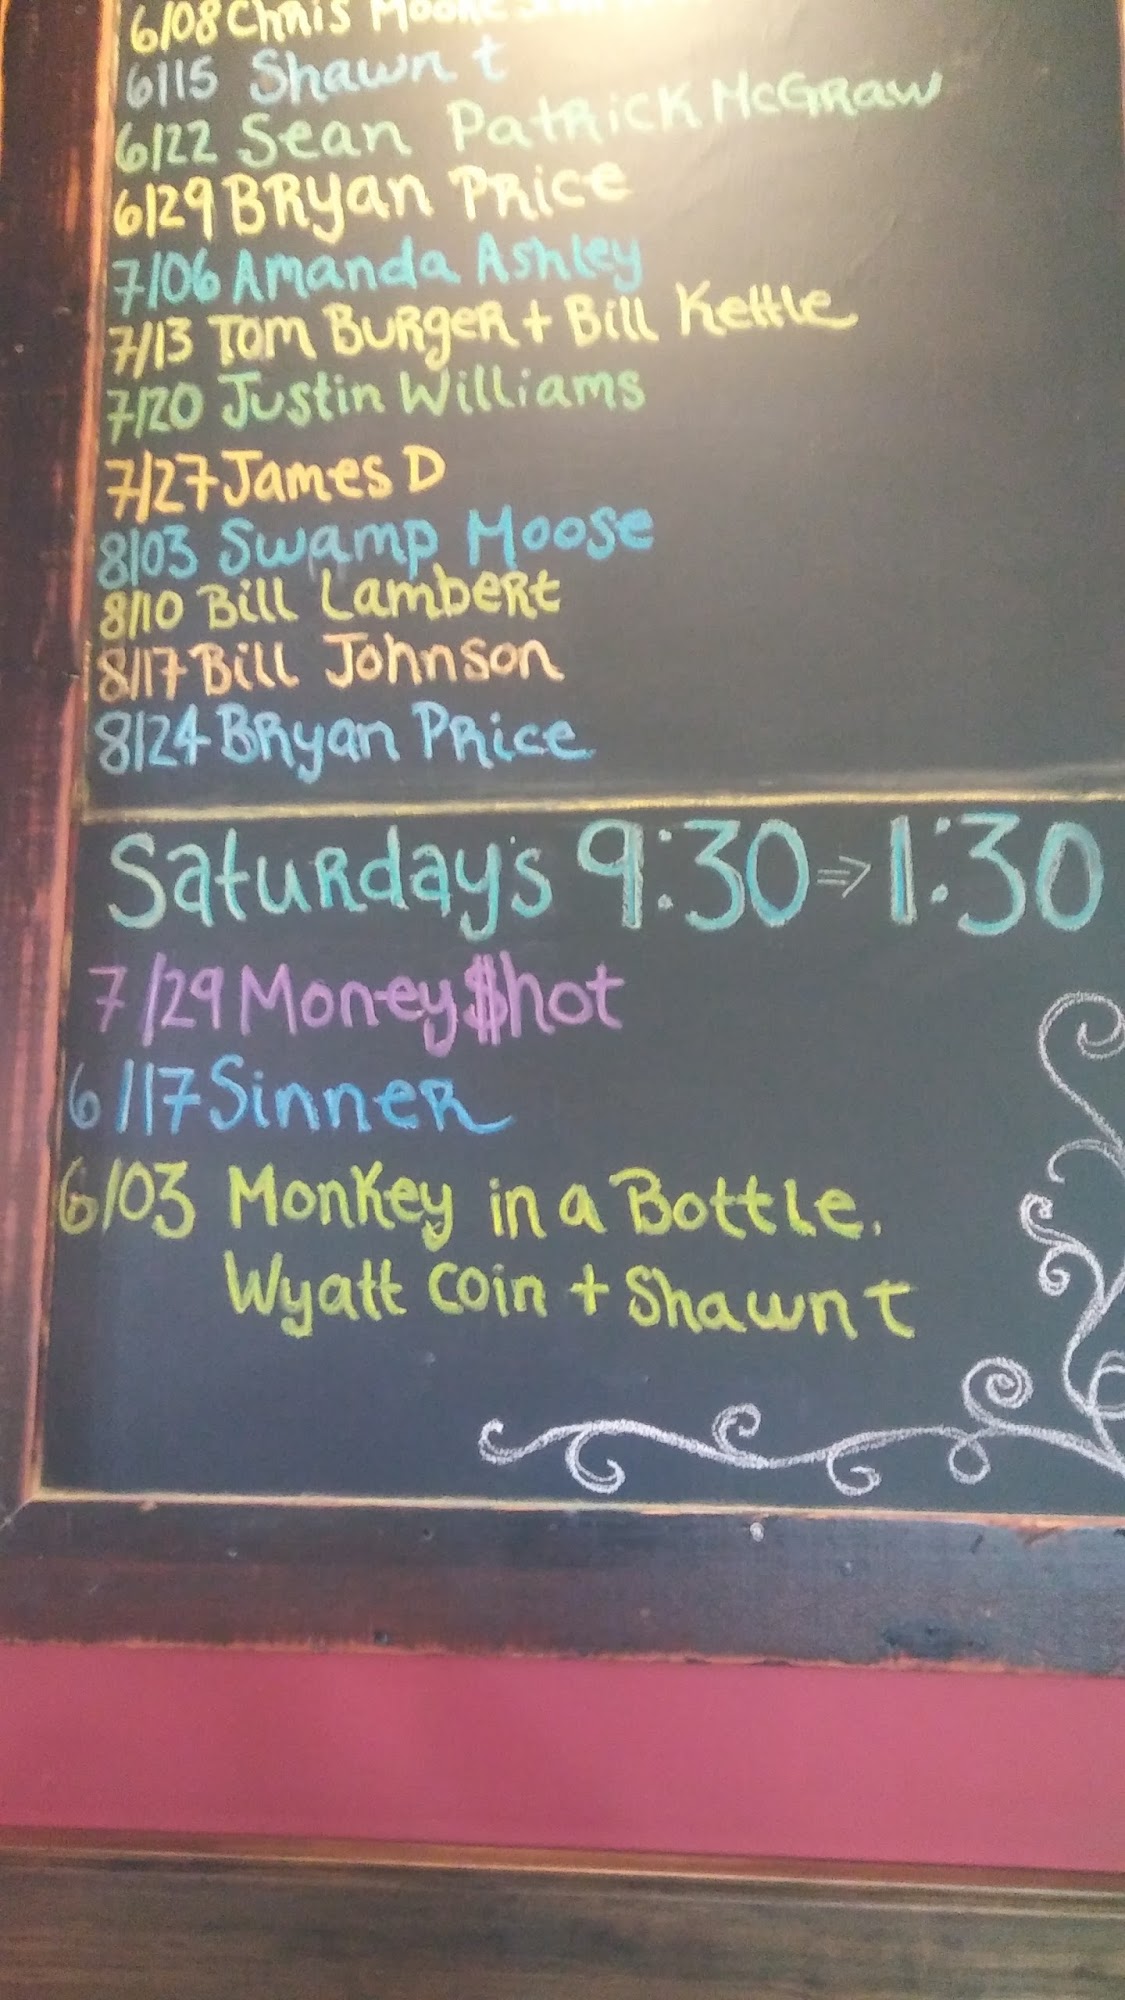 6/08 Chris Moore
6/15 Shawn t
6/22 Sean Patrick McGraw
6/29 Bryan Price
7/06 Amanda Ashley
7/13 Tom Burger + Bill Kettle
7/20 Justin Williams
7/27 James D
8/03 Swamp Moose
8/10 Bill Lambert
8/17 Bill Johnson
8/24 Bryan Price
Saturday's 9:30 ⇒ 1:30
7/29 Money$hot
6/17 Sinner
6/03 Monkey in a Bottle.
Wyatt Coin + Shawn t